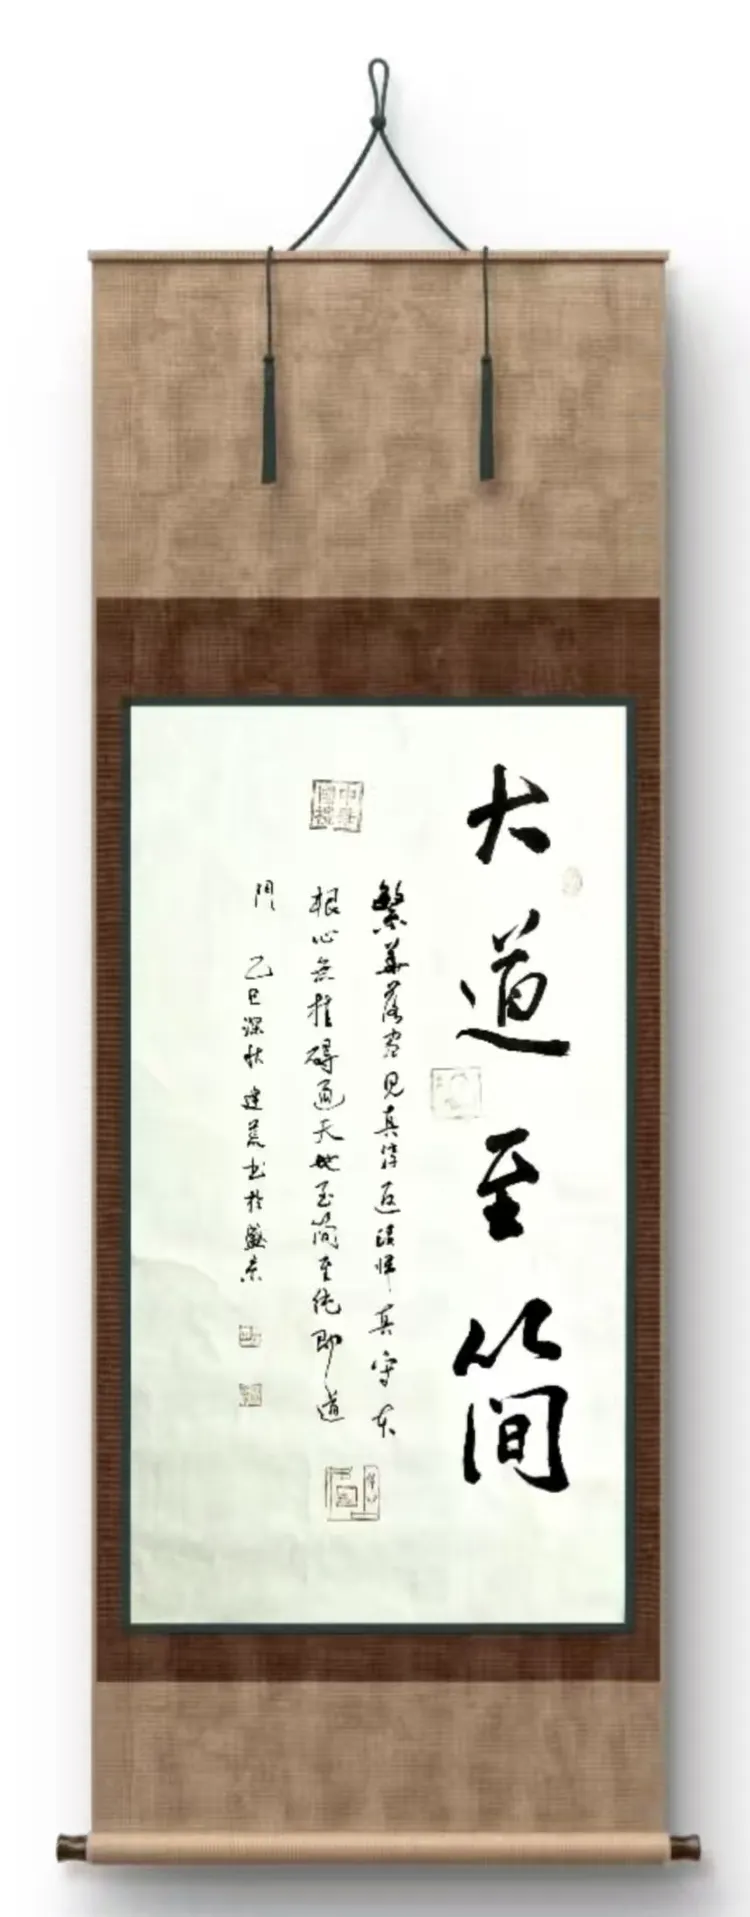 大道至简
繁華落尽见真淳返璞归真守本
根心无挂碍通天地至简至纯即道
门 乙巳深秋建荒书于盛京